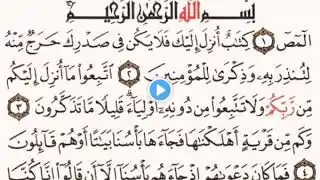 بِسْمِ اللَّهِ الرَّحْمَٰنِ الرَّحِيمِ
الٓمٓصٓ ١ كِتَٰبٌ أُنزِلَ إِلَيْكَ فَلَا يَكُن فِى صَدْرِكَ حَرَجٌ مِّنْهُ
لِتُنذِرَ بِهِۦ وَذِكْرَىٰ لِلْمُؤْمِنِينَ ٢ ٱتَّبِعُوا۟ مَآ أُنزِلَ إِلَيْكُم
مِّن رَّبِّكُمْ وَلَا تَتَّبِعُوا۟ مِن دُونِهِۦٓ أَوْلِيَآءَ قَلِيلًا مَّا تَذَكَّرُونَ ٣
وَكَم مِّن قَرْيَةٍ أَهْلَكْنَٰهَا فَجَآءَهَا بَأْسُنَا بَيَٰتًا أَوْ هُمْ قَآئِلُونَ
٤ فَمَا كَانَ دَعْوَىٰهُمْ إِذْ جَآءَهُم بَأْسُنَآ إِلَّآ أَن قَالُوٓا۟ إِنَّا كُنَّا